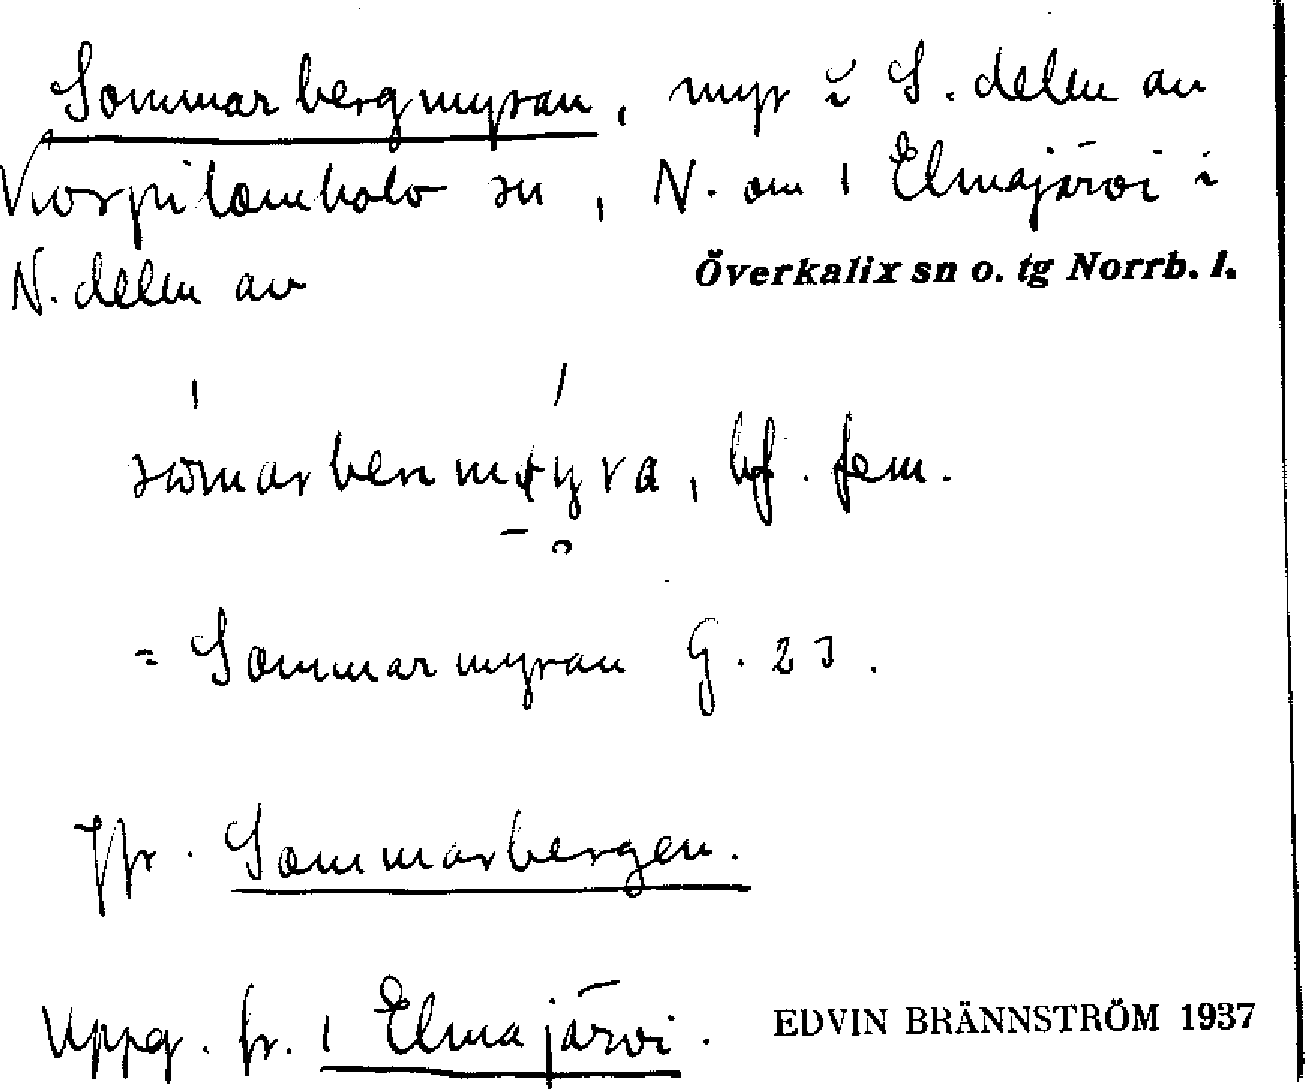 Sommarbergmyran, myr i S. delen av
Korpilombolo sn, N. om 1 Elmajärvi i
N. delen av
Överkalix sn o. tg Norrb. l.
bf. fem.
= Sommarmyran G. 23.
Jfr. Sommarbergen.
Uppg. fr. 1 Elmajärvi.
EDVIN BRÄNNSTRÖM 1937